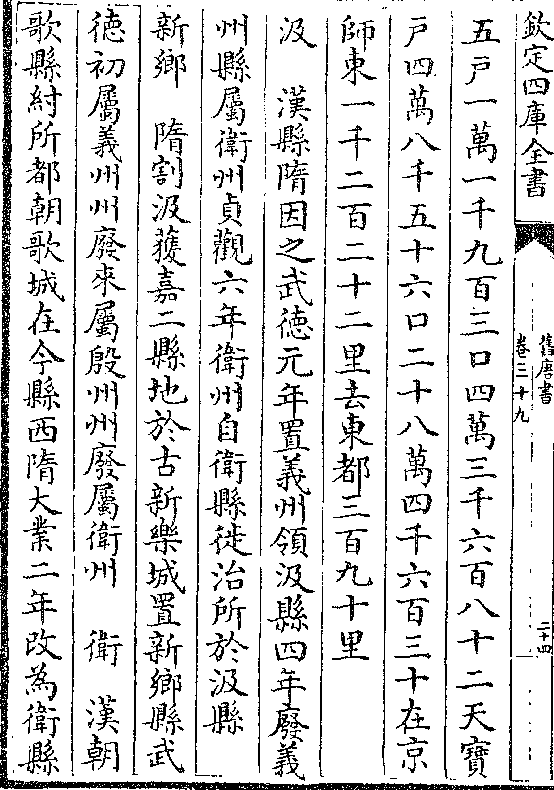 欽定四庫全書
舊唐書
卷三十九
二十四
五戸一萬一千九百三口四萬三千六百八十二天寶
戸四萬八千五十六口二十八萬四千六百三十在京
師東一千二百二十二里去東都三百九十里
汲　漢縣隋因之武德元年置義州領汲縣四年廢義
州縣屬衛州貞觀六年衛州自衛縣徙治所於汲縣
新鄉　隋割汲獲嘉二縣地於古新樂城置新鄉縣武
德初屬義州州廢來屬殷州州廢屬衛州　衛　漢朝
歌縣紂所都朝歌城在今縣西隋大業二年改為衛縣